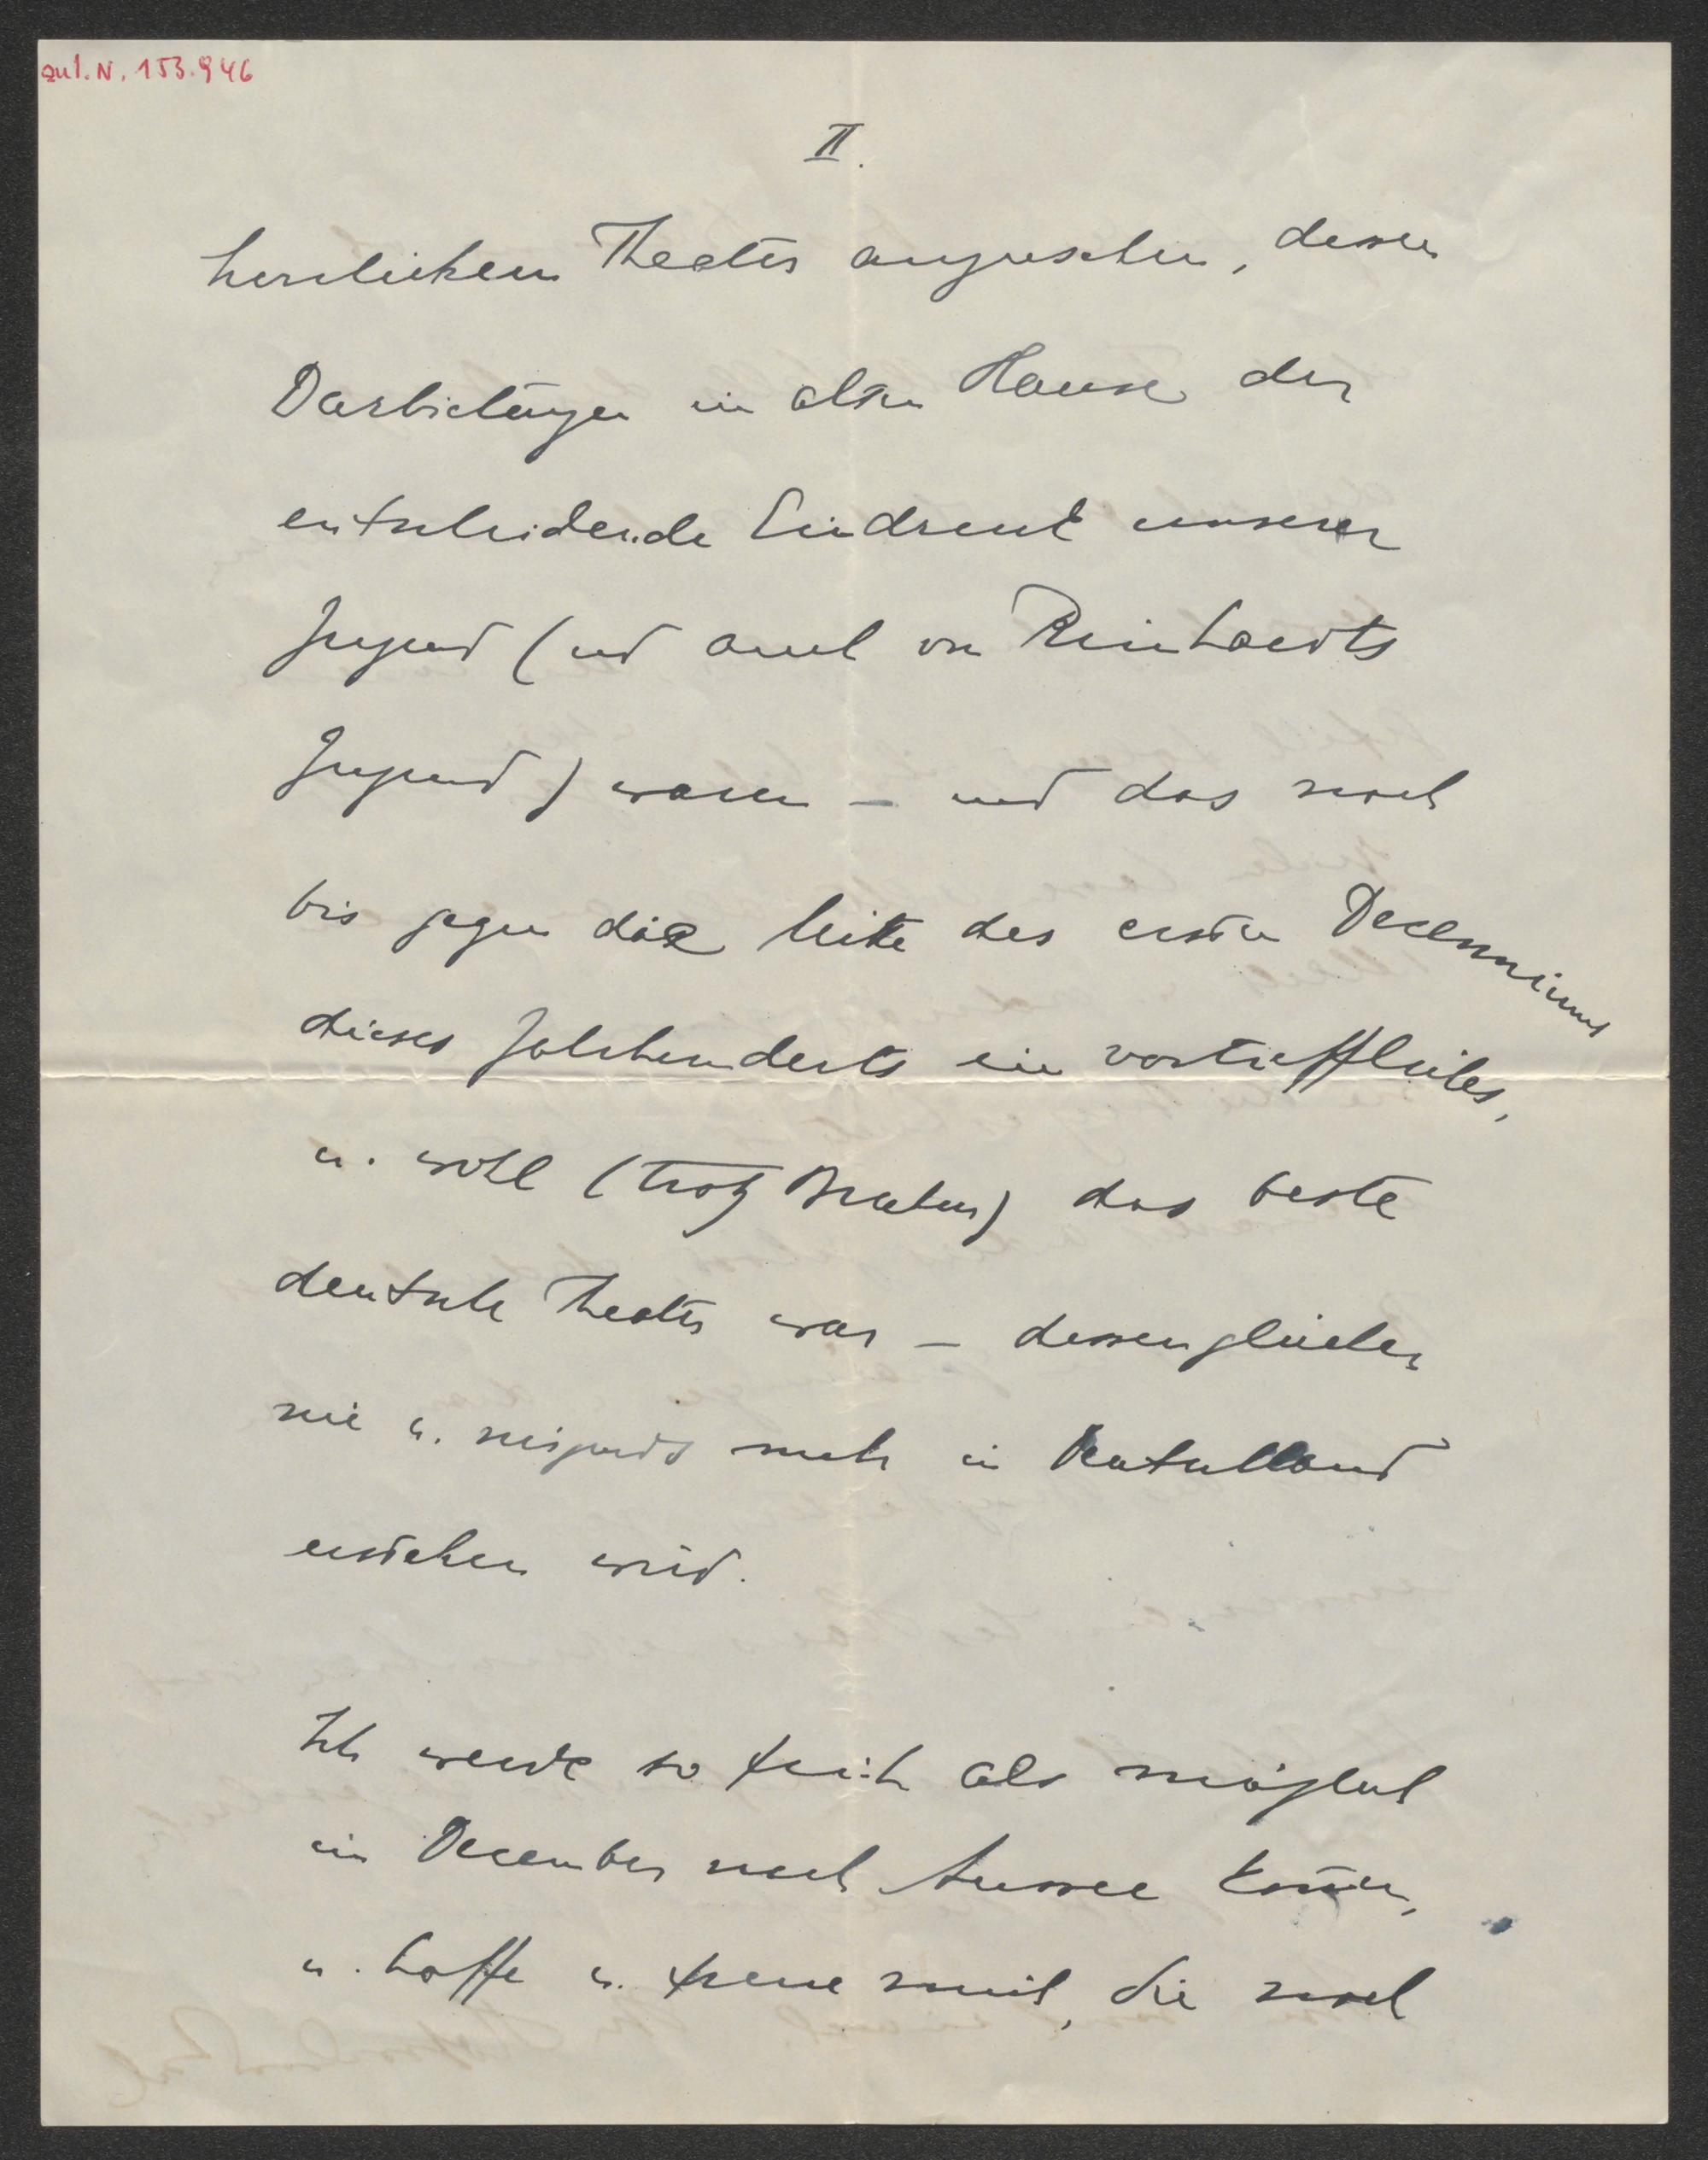 zu I. N. 153.946
II.
herrlichem Theater anzusehen, dessen
Darbietungen im alten Hause der
entscheidende Eindruck unserer
Jugend (und auch von Reinhardts
Jugend) waren – und das noch
bis gegen die Mitte des ersten Decenniums
dieses Jahrhunderts ein vortreffliches,
u. wohl (trotz Brahm) das beste
deutsche Theater war – dessengleichen
nie u. nirgends mehr in Deutschland
erstehen wird.
Ich werde so früh als möglich
im December nach Aussee
u. hoffe u. freue mich, Sie noch